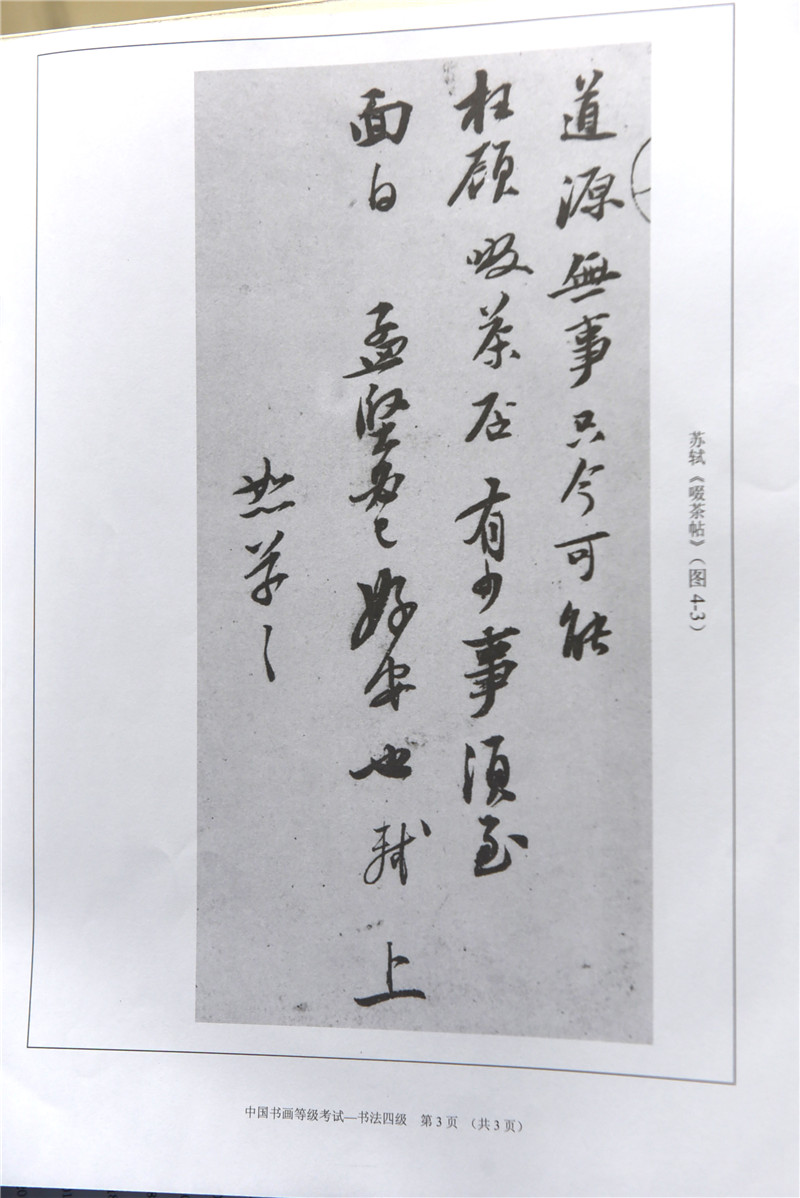 道源無事只今可能
枉顧啜茶否有少事須至
面白 孟堅必已好安也軾上
恕草々
苏轼《啜茶帖》(图 4-3)
中国书画等级考试—书法四级 第 3 页 (共 3 页)